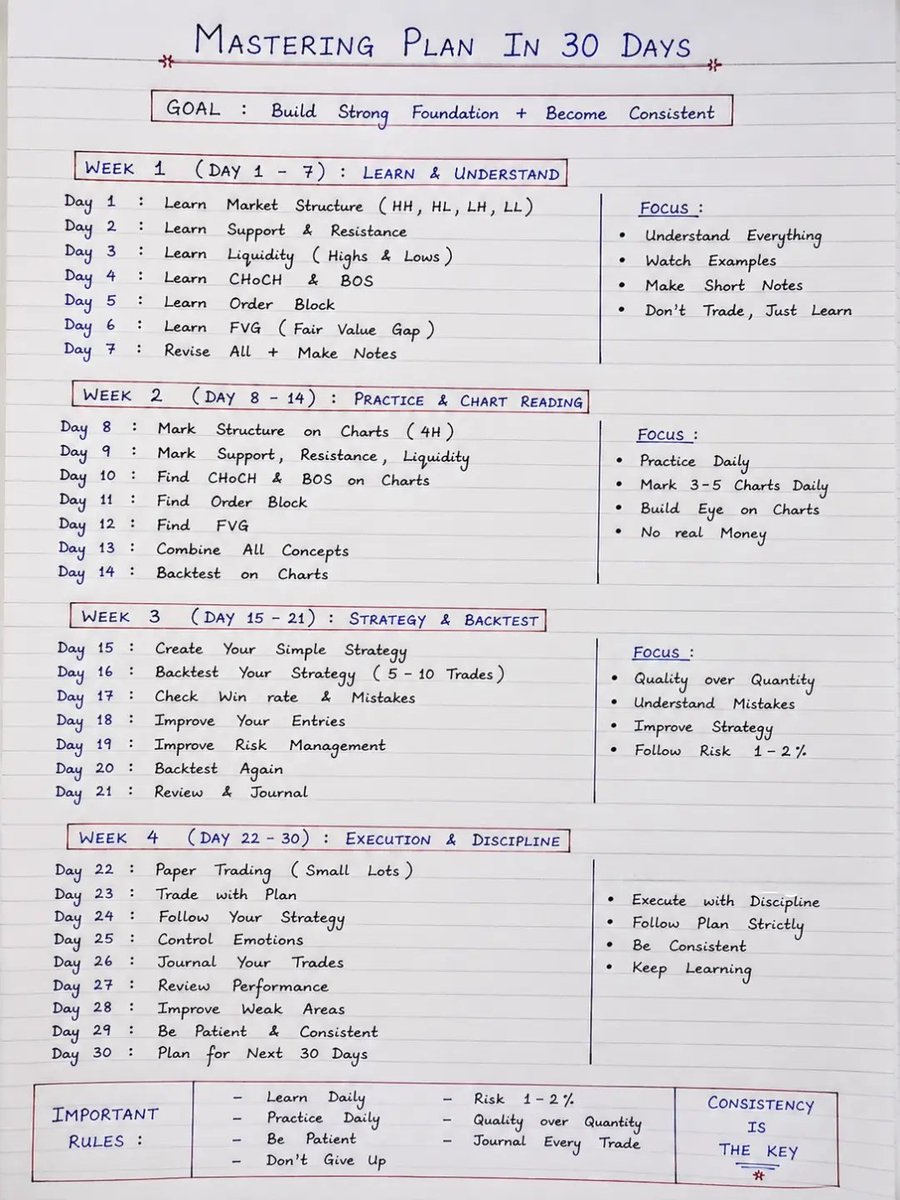 MASTERING PLAN IN 30 DAYS
GOAL : Build Strong Foundation + Become Consistent
WEEK 1 (DAY 1 - 7) : LEARN & UNDERSTAND
Day 1 : Learn Market Structure (HH, HL, LH, LL)
Day 2 : Learn Support & Resistance
Day 3 : Learn Liquidity (Highs & Lows)
Day 4 : Learn CHoCH & BOS
Day 5 : Learn Order Block
Day 6 : Learn FVG (Fair Value Gap)
Day 7 : Revise All + Make Notes
FOCUS :
• Understand Everything
• Watch Examples
• Make Short Notes
• Don't Trade, Just Learn
WEEK 2 (DAY 8 - 14) : PRACTICE & CHART READING
Day 8 : Mark Structure on Charts (4H)
Day 9 : Mark Support, Resistance, Liquidity
Day 10 : Find CHoCH & BOS on Charts
Day 11 : Find Order Block
Day 12 : Find FVG
Day 13 : Combine All Concepts
Day 14 : Backtest on Charts
FOCUS :
• Practice Daily
• Mark 3-5 Charts Daily
• Build Eye on Charts
• No real Money
WEEK 3 (DAY 15 - 21) : STRATEGY & BACKTEST
Day 15 : Create Your Simple Strategy
Day 16 : Backtest Your Strategy (5 - 10 Trades)
Day 17 : Check Win rate & Mistakes
Day 18 : Improve Your Entries
Day 19 : Improve Risk Management
Day 20 : Backtest Again
Day 21 : Review & Journal
FOCUS :
• Quality over Quantity
• Understand Mistakes
• Improve Strategy
• Follow Risk 1-2%
WEEK 4 (DAY 22 - 30) : EXECUTION & DISCIPLINE
Day 22 : Paper Trading (Small Lots)
Day 23 : Trade with Plan
Day 24 : Follow Your Strategy
Day 25 : Control Emotions
Day 26 : Journal Your Trades
Day 27 : Review Performance
Day 28 : Improve Weak Areas
Day 29 : Be Patient & Consistent
Day 30 : Plan for Next 30 Days
• Execute with Discipline
• Follow Plan Strictly
• Be Consistent
• Keep Learning
IMPORTANT
RULES :
- Learn Daily
- Practice Daily
- Be Patient
- Don't Give Up
- Risk 1-2%
- Quality over Quantity
- Journal Every Trade
CONSISTENCY
IS
THE KEY